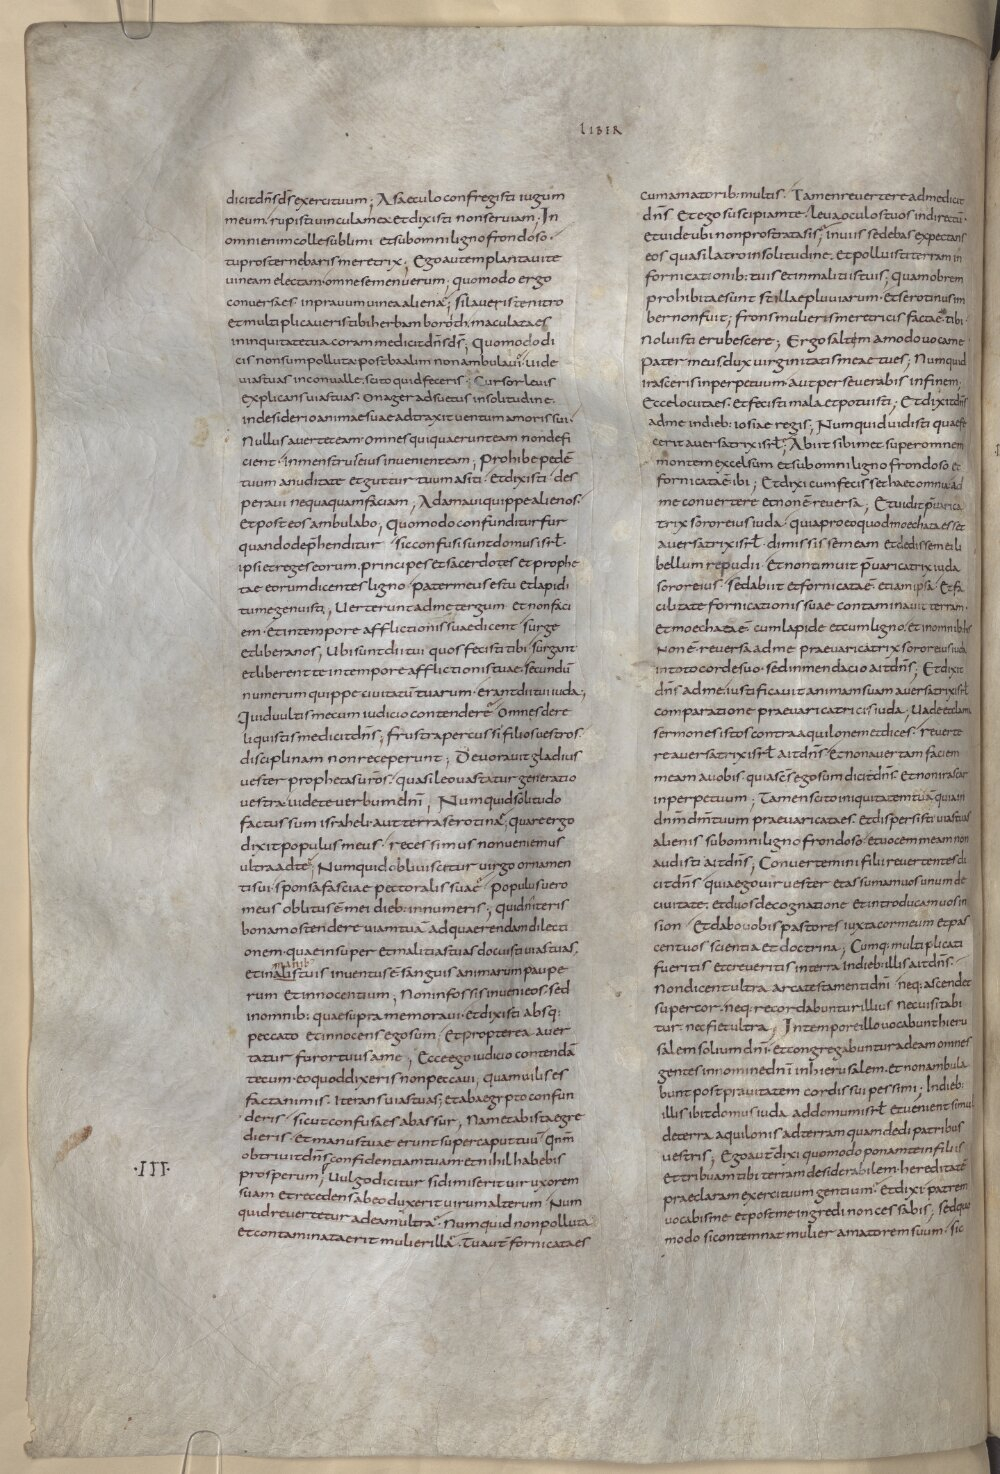 LIBER
dicit dn̄s ds̄ exercituum; A saeculo confregisti iugum
meum. rupisti vincula mea et dixisti non serviam; In
omni enim colle sublimi et sub omni ligno frondoso
tu prosternebaris meretrix; Ego autem plantavi te
vineam electam. omne semen verum; quomodo ergo
conversa es in pravum vinea aliena; si laveris te nitro
et multiplicaveris tibi herbam borith. maculata es
in iniquitate tua coram me dicit dn̄s ds̄; Quomodo di
cis non sum polluta. post baalim non ambulavi; vide
vias tuas in convalle. scito quid feceris; Cursor levis
explicans vias tuas. Onager adsuetus in solitudine.
in desiderio animae suae adtraxit ventum amoris sui.
Nullus avertet eam. omnes qui quaerunt eam non defi
cient. in menstruis eius invenient eam; Prohibe pedē
tuum a nuditate et guttur tuum a siti. Et dixisti. des
peravi nequaquam faciam; Adamavi quippe alienos.
et post eos ambulabo; Quomodo confunditur fur
quando dep̄henditur. sic confusi sunt domus isrl̄.
ipsi et reges eorum. principes et sacerdotes et prophe
tae eorum dicentes ligno. Pater meus es tu et lapidi
tu me genuisti; Verterunt ad me tergum. et non faci
em. et in tempore afflictionis suae dicent. surge
et libera nos; Ubi sunt dii tui quos fecisti tibi. surgant
et liberent te in tempore afflictionis tuae. secundū
numerum quippe civitatū tuarum. erant dii tui iuda;
Quid vultis mecum iudicio contendere. Omnes dere
liquistis me dicit dn̄s; frustra percussi filios vestros.
disciplinam non receperunt; Devoravit gladius
vester prophetas ur̄os. quasi leo vastatur generatio
vestra. videte verbum dn̄i; Numquid solitudo
factus sum israheli. aut terra serotina; quare ergo
dixit populus meus. recessimus non veniemus
ultra ad te; Numquid obliviscetur virgo ornamen
ti sui. sponsa fasciae pectoralis suae; populus vero
meus oblitus ē mei dieb: innumeris; quid niteris
bonam ostendere viam tuā ad quaerendam dilecti
onem. quae insuper et malitias tuas docuisti vias tuas.
manib
et in alis tuis inventus ē sanguis animarum paupe
rum et innocentium; Non in fossis inveni eos. sed
in omnib: quae supra memoravi. et dixisti absq:
peccato et innocens ego sum; Et propterea aver
tatur furor tuus a me; Ecce ego iudicio contendā
tecum. eo quod dixeris non peccavi; quam vilis es
facta nimis. Iterans vias tuas; et ab aegypto confun
deris sicut confusa es ab assur; Nam et ab ista egre
dieris. et manus tuae erunt super caput tuū. Qn̄m
obtrivit dn̄s confidentiam tuam. et nihil habebis
prosperum; Vulgo dicitur si dimiserit vir uxorem
suam et recedens ab eo duxerit virum alterum. Num
quid revertetur ad eam ultra. Numquid non polluta
et contaminata erit mulier illa. Tu aut̄ fornicata es
.III.
cum amatorib: multis. Tamen revertere ad me dicit
dn̄s. Et ego suscipiam te. leva oculos tuos in directū.
et vide ubi non prostrata sis; in viis sedebas expectans
eos quasi latro in solitudine. et polluisti terram in
fornicationib: tuis et in malitiis tuis; quamobrem
prohibitae sunt stillae pluviarum. et serotinus im
ber non fuit; frons mulieris meretricis facta ē tibi.
Noluisti erubescere; Ergo saltem amodo voca me
Pater meus. dux virginitatis meae tu es; Numquid
irasceris in perpetuum. aut perseverabis in finem.
Ecce locuta es. et fecisti mala et potuisti; Et dixit dn̄s
ad me in dieb: iosiae regis; Numquid vidisti quae fe
cerit aversatrix isrl̄; Abiit sibimet super omnem
montem excelsum et sub omni ligno frondoso et
fornicata ē ibi; Et dixi cum fecisset haec omnia. ad
me convertere et non ē reversa; Et vidit p̄varica
trix soror eius iuda. quia pro eo quod moechata esset
aversatrix isrl̄. dimississem eam et dedissem ei li
bellum repudii. et non timuit p̄varicatrix iuda
soror eius. sed abiit et fornicata ē. etiam ipsa. Et fa
cilitate fornicationis suae contaminavit terram.
et moechata ē cum lapide et cum ligno. et in omnib: his
Non ē reversa ad me praevaricatrix soror eius iuda
in toto corde suo. sed in mendacio ait dn̄s; Et dixit
dn̄s ad me. iustificavit animam suam aversatrix isrl̄
comparatione praevaricatricis iuda; Vade et clama
sermones istos contra aquilonem et dices. reverte
re aversatrix isrl̄ ait dn̄s. Et non avertam faciem
meam a vobis. quia scs̄ ego sum dicit dn̄s. Et non irascar
in perpetuum; Tamen scito iniquitatem tuā. quia in
dnm̄ dm̄ tuum praevaricata es. Et dispersisti vias tuas
alienis sub omni ligno frondoso. et vocem meam non
audisti ait dn̄s; Convertemini filii revertentes di
cit dn̄s quia ego vir vester et assumam vos unum de
civitate. et duos de cognatione. et introducam vos in
sion. Et dabo vobis pastores iuxta cor meum et pas
cent vos scientia et doctrina; Cumq: multiplicati
fueritis et creveritis in terra in dieb: illis ait dn̄s.
Non dicent ultra. arca testamenti dn̄i. neq: ascendet
super cor. neq: recordabuntur illius nec visitabi
tur. nec fiet ultra; In tempore illo vocabunt hieru
salem solium dn̄i. et congregabuntur ad eam omnes
gentes in nomine dn̄i in hierusalem. et non ambula
bunt post pravitatem cordis sui pessimi; In dieb:
illis ibit domus iuda ad domum isrl̄. et venient simul
de terra aquilonis ad terram quam dedi patribus
vestris; Ego aut̄ dixi quomodo ponam te in filiis
et tribuam tibi terram desiderabilem. hereditatē
praeclaram exercituum gentium. Et dixi patrem
vocabis me et post me ingredi non cessabis; sed quo
modo si contemnat mulier amatorem suum. sic